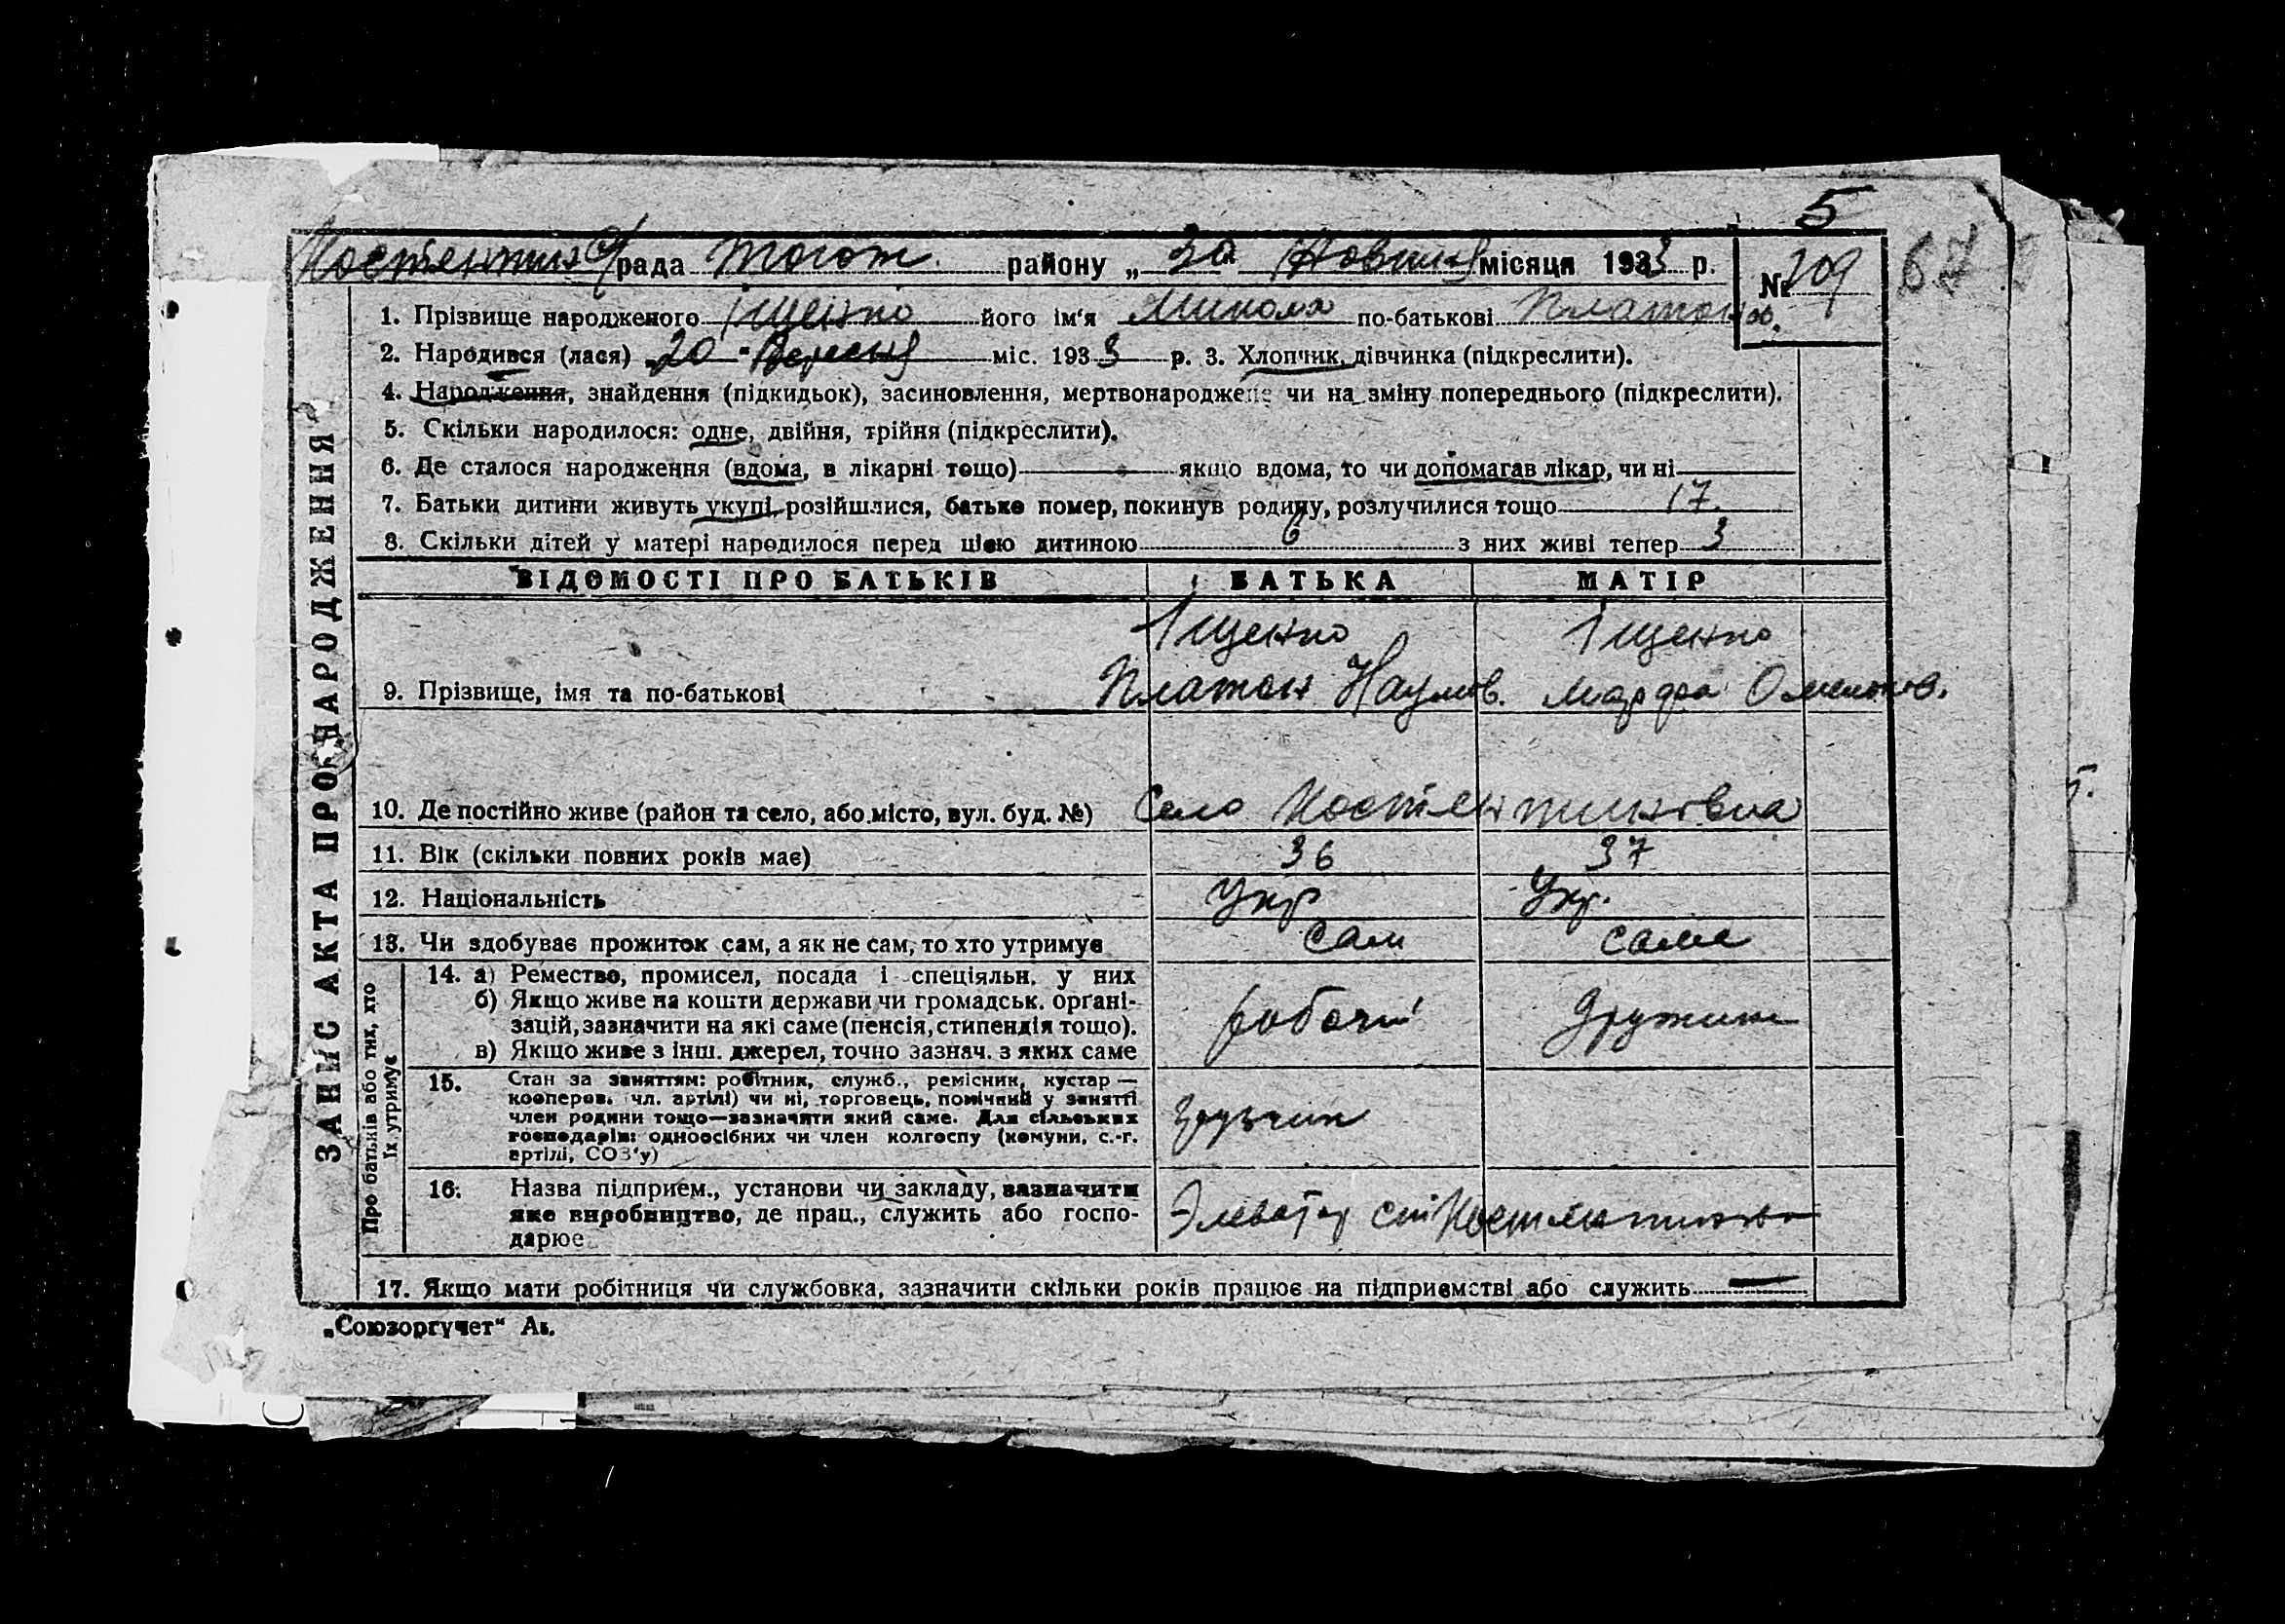 5
Костянтин с/рада Тогот. району „ 30 " Жовтня місяця 1933 р. № 209 67
1. Прізвище народженого Іщенко його ім'я Микола по-батькові Платонов.
2. Народився (лася) „20" Вересня міс. 1933 р. 3. Хлопчик, дівчинка (підкреслити).
4. Народження, знайдення (підкидьок), засиновлення, мертвонароджене чи на зміну попереднього (підкреслити).
5. Скільки народилося: одне, двійня, трійня (підкреслити).
6. Де сталося народження (вдома, в лікарні тощо) якщо вдома, то чи допомагав лікар, чи ні
7. Батьки дитини живуть укупі, розійшлися, батько помер, покинув родину, розлучилися тощо 17.
8. Скільки дітей у матері народилося перед цією дитиною 6 з них живі тепер 3
ЗАПИС АКТА ПРО НАРОДЖЕННЯ
ВІДОМОСТІ ПРО БАТЬКІВ БАТЬКА МАТІР
Іщенко Іщенко
9. Прізвище, імя та по-батькові Платон Наумов. Марфа Омельков.
10. Де постійно живе (район та село, або місто, вул. буд. №) Село Костянтинівка
11. Вік (скільки повних років має) 36 37
12. Національність Укр Укр.
13. Чи здобуває прожиток сам, а як не сам, то хто утримує Сам сама
Про батьків або тих, хто їх утримує
14. а) Ремество, промисел, посада і спеціяльн. у них
б) Якщо живе на кошти держави чи громадськ. органі-
зацій, зазначити на які саме (пенсія, стипендія тощо). робочий Дружина
в) Якщо живе з інш. джерел, точно зазнач. з яких саме
15. Стан за заняттям: робітник, служб., ремісник, кустар —
кооперов. чл. артілі) чи ні, торговець, помічний у занятті
член родини тощо—зазначити який саме. Для сільських грузчик
господарів: одноосібних чи член колгоспу (комуни, с.-г.
артілі, СОЗ'у)
16. Назва підприєм., установи чи закладу, зазначити
яке виробництво, де прац., служить або госпо- Элеватор ст Костянтиновка
дарює
17. Якщо мати робітниця чи службовка, зазначити скільки років працює на підприємстві або служить —
„Союзоргучет"